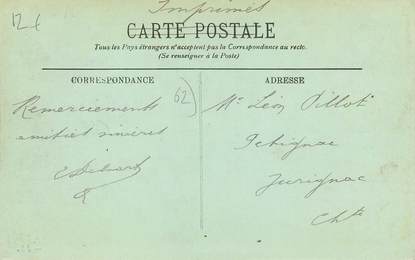 12 €
Imprimés
CARTE POSTALE
Tous les Pays étrangers n'acceptent pas la Correspondance au recto.
(Se renseigner à la Poste)
CORRESPONDANCE
Remerciements
amitiés sincères
62
ADRESSE
Mr Léon Pillot
Petignac
Jurignac
Chte